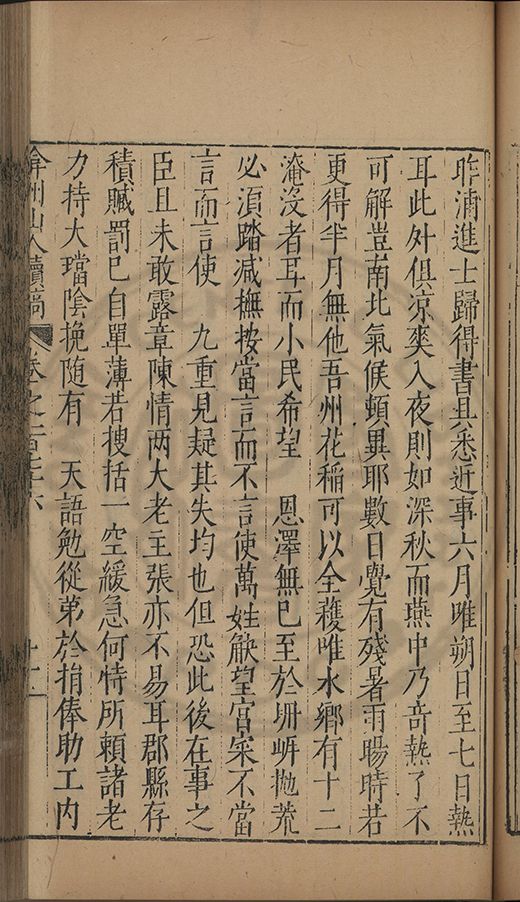 昨浦進士歸得書具悉近事六月唯朔日至七日熱
耳此外俱凉爽入夜則如深秋而燕中乃奇熱了不
可解豈南北氣候頓異耶數日覺有殘暑雨暘時若
更得半月無他吾州花稻可以全穫唯水鄉有十二
淹沒者耳而小民希望 恩澤無已至於坍㟁抛荒
必湏踏減撫按當言而不言使萬姓觖望宫寀不當
言而言使 九重見疑其失均也但恐此後在事之
臣且未敢露章陳情两大老主張亦不易耳郡縣存
積贓罰已自單薄若搜括一空緩急何恃所頼諸老
力持大璫陰挽随有 天語勉從弟於捐俸助工内
弇州山人續稿 卷之一百七十六 十二